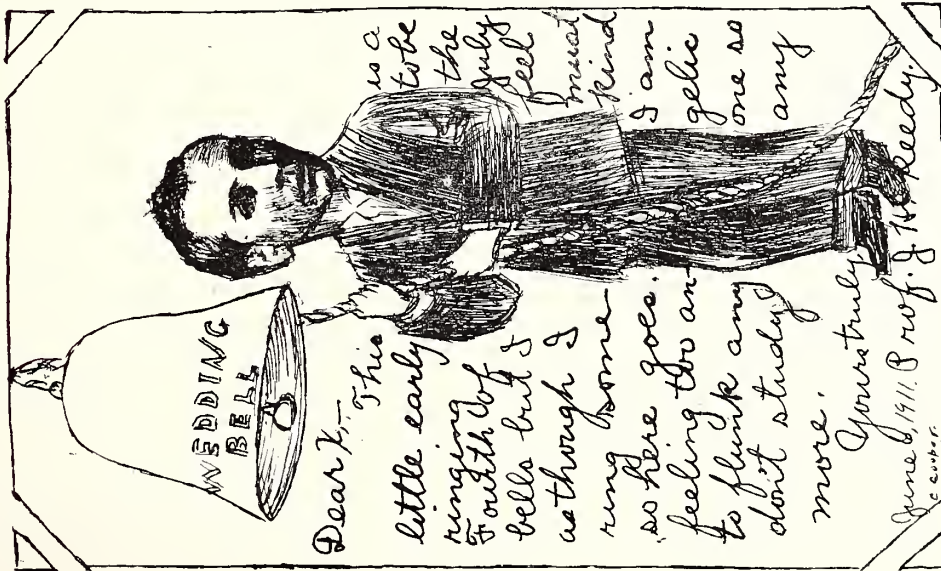 WEDDING
BELL
Dear X,—
This is a
little early to be
ringing the
Fourth of July
bells but I feel
as though I must
ring some kind
so here goes. I am
feeling too an- gelic
to flunk any one so
don't study any
more.
Yours truly,
June 9, 1911. Prof. J. H. Keedy.
c cooper.